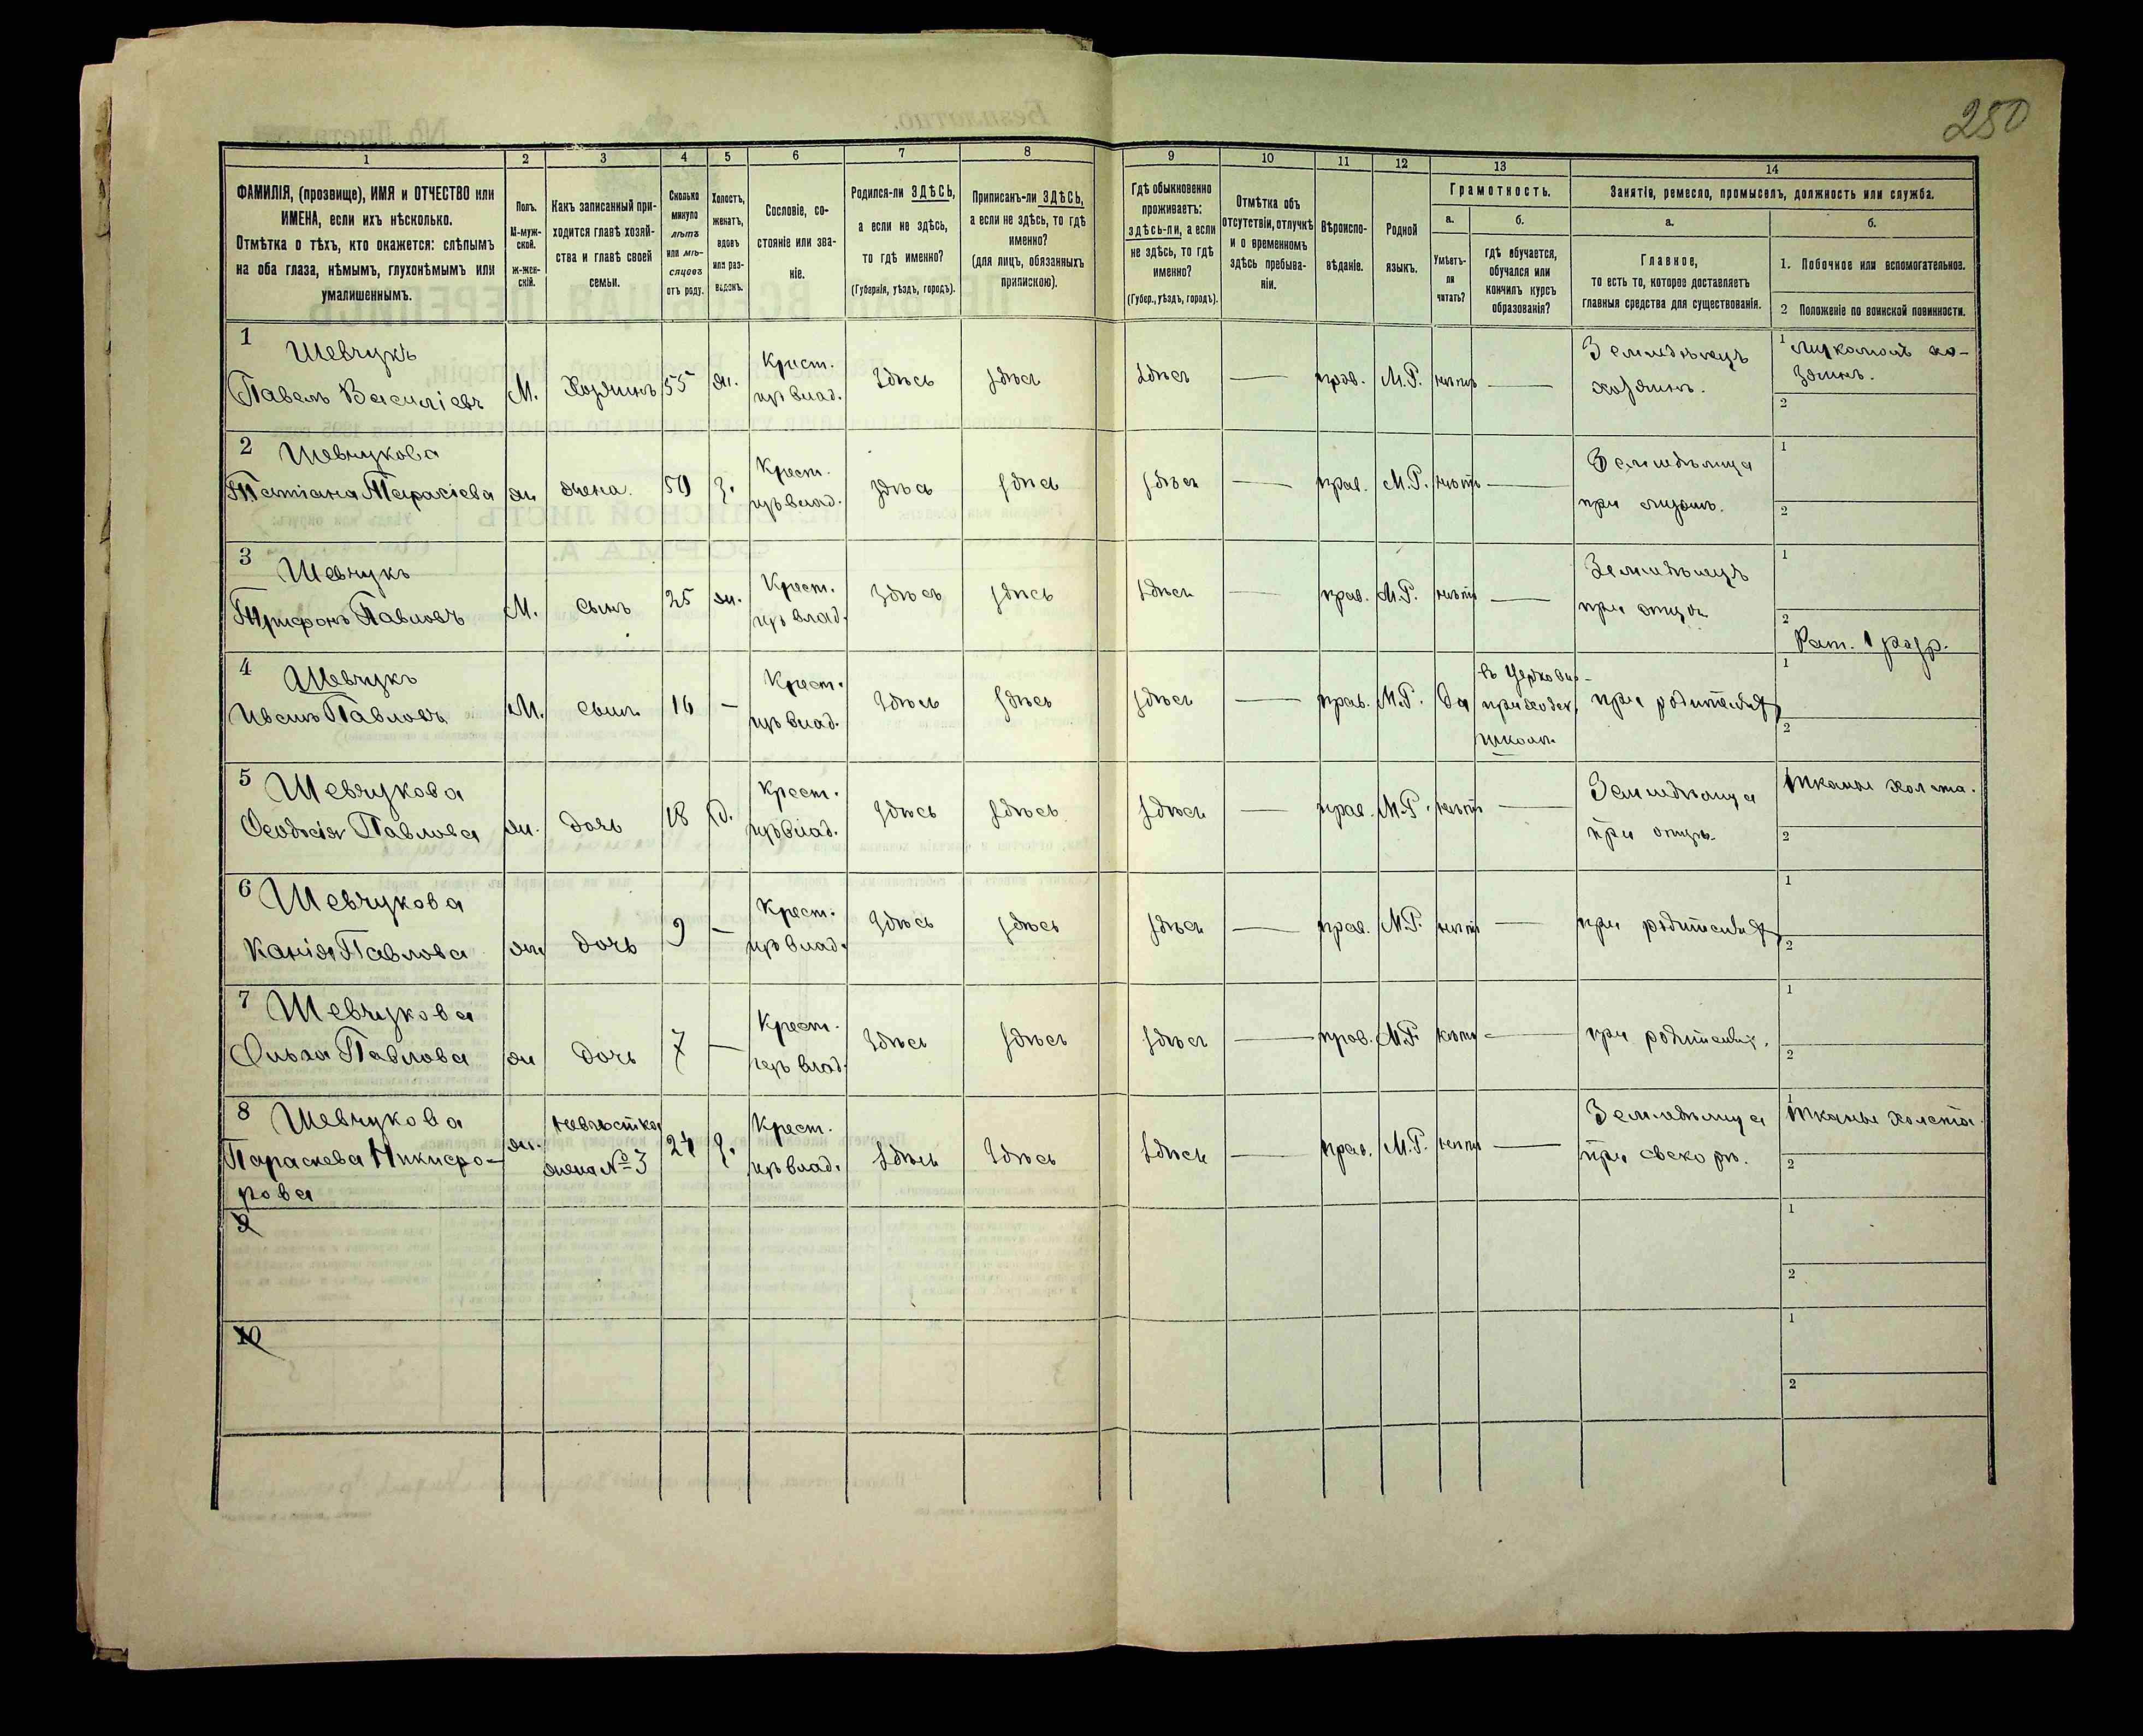 250
1
2
3
4
5
6
7
8
9
10
11
12
13
14
ФАМИЛІЯ, (прозвище), ИМЯ и ОТЧЕСТВО или
ИМЕНА, если ихъ нѣсколько.
Отмѣтка о тѣхъ, кто окажется: слѣпымъ
на оба глаза, нѣмымъ, глухонѣмымъ или
умалишеннымъ.
Полъ.
М-муж-
ской.
ж-жен-
скій.
Какъ записанный при-
ходится главѣ хозяй-
ства и главѣ своей
семьи.
Сколько
минуло
лѣтъ
или мѣ-
сяцевъ
отъ роду.
Холостъ,
женатъ,
вдовъ
или раз-
веденъ.
Сословіе, со-
стояніе или зва-
ніе.
Родился-ли ЗДѢСЬ,
а если не здѣсь,
то гдѣ именно?
(Губернія, уѣздъ, городъ).
Приписанъ-ли ЗДѢСЬ,
а если не здѣсь, то гдѣ
именно?
(для лицъ, обязанныхъ
припискою).
Гдѣ обыкновенно
проживаетъ:
здѣсь-ли, а если
не здѣсь, то гдѣ
именно?
(Губер., уѣздъ, городъ).
Отмѣтка объ
отсутствіи, отлучкѣ
и о временномъ
здѣсь пребыва-
ніи.
Вѣроиспо-
вѣданіе.
Родной
языкъ.
Грамотность.
а.
Умѣетъ-
ли
читать?
б.
гдѣ обучается,
обучался или
кончилъ курсъ
образованія?
Занятія, ремесло, промыселъ, должность или служба.
а.
Главное,
то есть то, которое доставляетъ
главныя средства для существованія.
б.
1. Побочное или вспомогательное.
2 Положеніе по воинской повинности.
1 Шевчукъ
Павелъ Василіевъ
М. Хозяинъ 55 ж. Крест. изъ влад. Здѣсь здѣсь здѣсь — прав. М.Р. нѣтъ —
Земледѣлецъ
хозяинъ.
1
2
2 Шевчукова
Татіана Тарасіева
ж жена. 50 з. Крест. изъ влад. здѣсь здѣсь здѣсь — прав. М.Р. нѣтъ —
Земледѣлица
при мужѣ.
1
2
3 Шевчукъ
Трифонъ Павловъ
М. сынъ 25 ж. Крест. изъ влад. Здѣсь здѣсь здѣсь — прав. М.Р. нѣтъ —
Земледѣлецъ
при отцѣ
1
2
Рат. 1 разр.
4 Шевчукъ
Иванъ Павловъ
М. сынъ 16 — Крест. изъ влад. Здѣсь здѣсь здѣсь — прав. М.Р. да
въ Церковно-
приходск.
школѣ.
при родителях
1
2
5 Шевчукова
Ѳеодосія Павлова
ж. дочь 18 д. Крест. изъ влад. Здѣсь здѣсь здѣсь — прав. М.Р. нѣтъ —
Земледѣлица
при отцѣ.
1 тканье холста.
2
6 Шевчукова
Ксенія Павлова
ж дочь 9 — Крест. изъ влад. Здѣсь здѣсь здѣсь — прав. М.Р. нѣтъ —
при родителях
1
2
7 Шевчукова
Ольга Павлова
ж дочь 7 — Крест. изъ влад. Здѣсь здѣсь здѣсь — прав. М.Р. нѣтъ —
при родителях.
1
2
8 Шевчукова
Параскева Никифо-
рова
ж. невѣстка
жена № 3
24 з. Крест. изъ влад. Здѣсь Здѣсь здѣсь — прав. М.Р. нѣтъ —
Земледѣлица
при свекорѣ.
1 тканье холста.
2
9
1
2
10
1
2